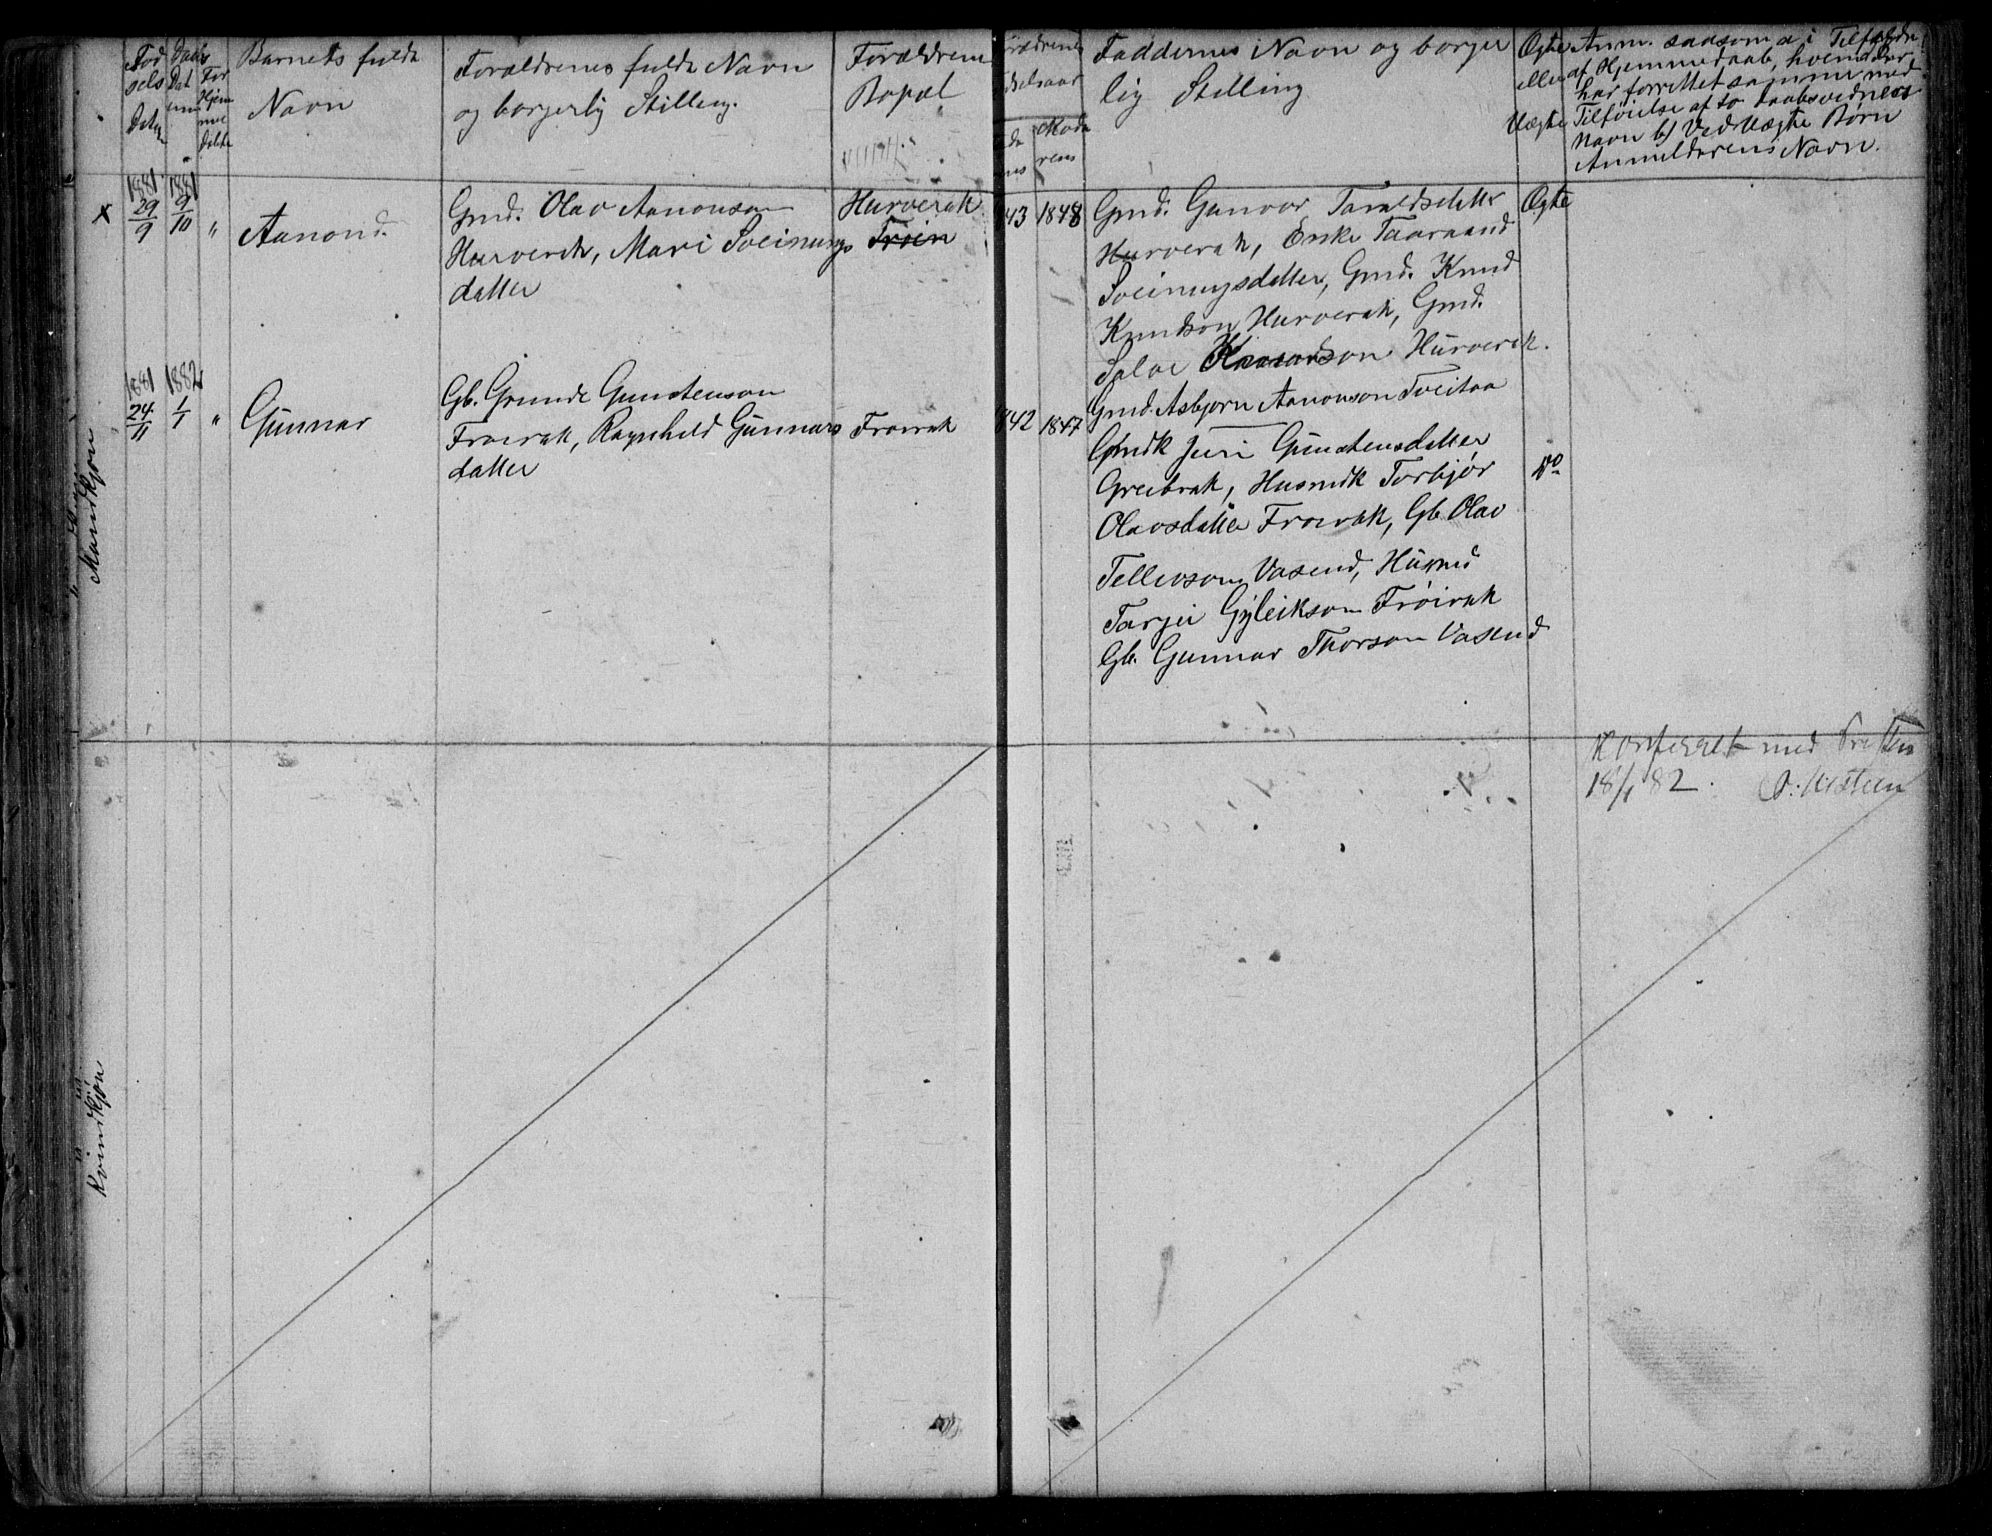 Fød
sels
Daten
Daabs
Dat
um
For
Hjem
me
døbte
Barnets fulde
Navn
Forældrenes fulde Navn
og borgerlig Stilling.
Forældrenes
Bopæl
Forældrenes
Fødselsaar
Mode
rens
Faddernes Navn og borger
lig Stilling
Øgte
eller
Uægte
Anm. saasom a i Tilfælde
af Hjemmedaab, hvem der
har forrettet samme med
Tilføielse af to Daabsvidners
Navn b/ Ved Uægte Børn
Anmelderens Navn.
Mandkjøn
x
1881
29/9
1881
9/10
"
Aanond.
Gmd. Olav Aanonson
Hurverak, Mari Sveinungs
datter
Hurverak
Froin
43
1848
Gmd. Gunvor Taraldsdatter
Hurverak, Enke Taaraand
Sveinungsdatter, Gmd. Knud
Knudson Hurverak, Gmd.
Salve Knudson Hurverak.
Gmd. Asbjørn Aanonson Tveitaa
Øgte
1881
24/11
1882
1/1
"
Gunnar
Gb. Grunde Gunstenson
Frøirak, Ragnhild Gunnars
datter
Frøirak
842
1847
Gmdk Juri Gunstensdatter
Greibrak, Husmdk Torbjør
Olavsdatter Frøirak, Gb Olav
Tellevson Vasend, Husmd
Tarjei Gjyleikson Frøirak
Gb. Gunnar Thorson Vasend
Do
Konfereret med Presten
18/1 82.
Kvindkjøn